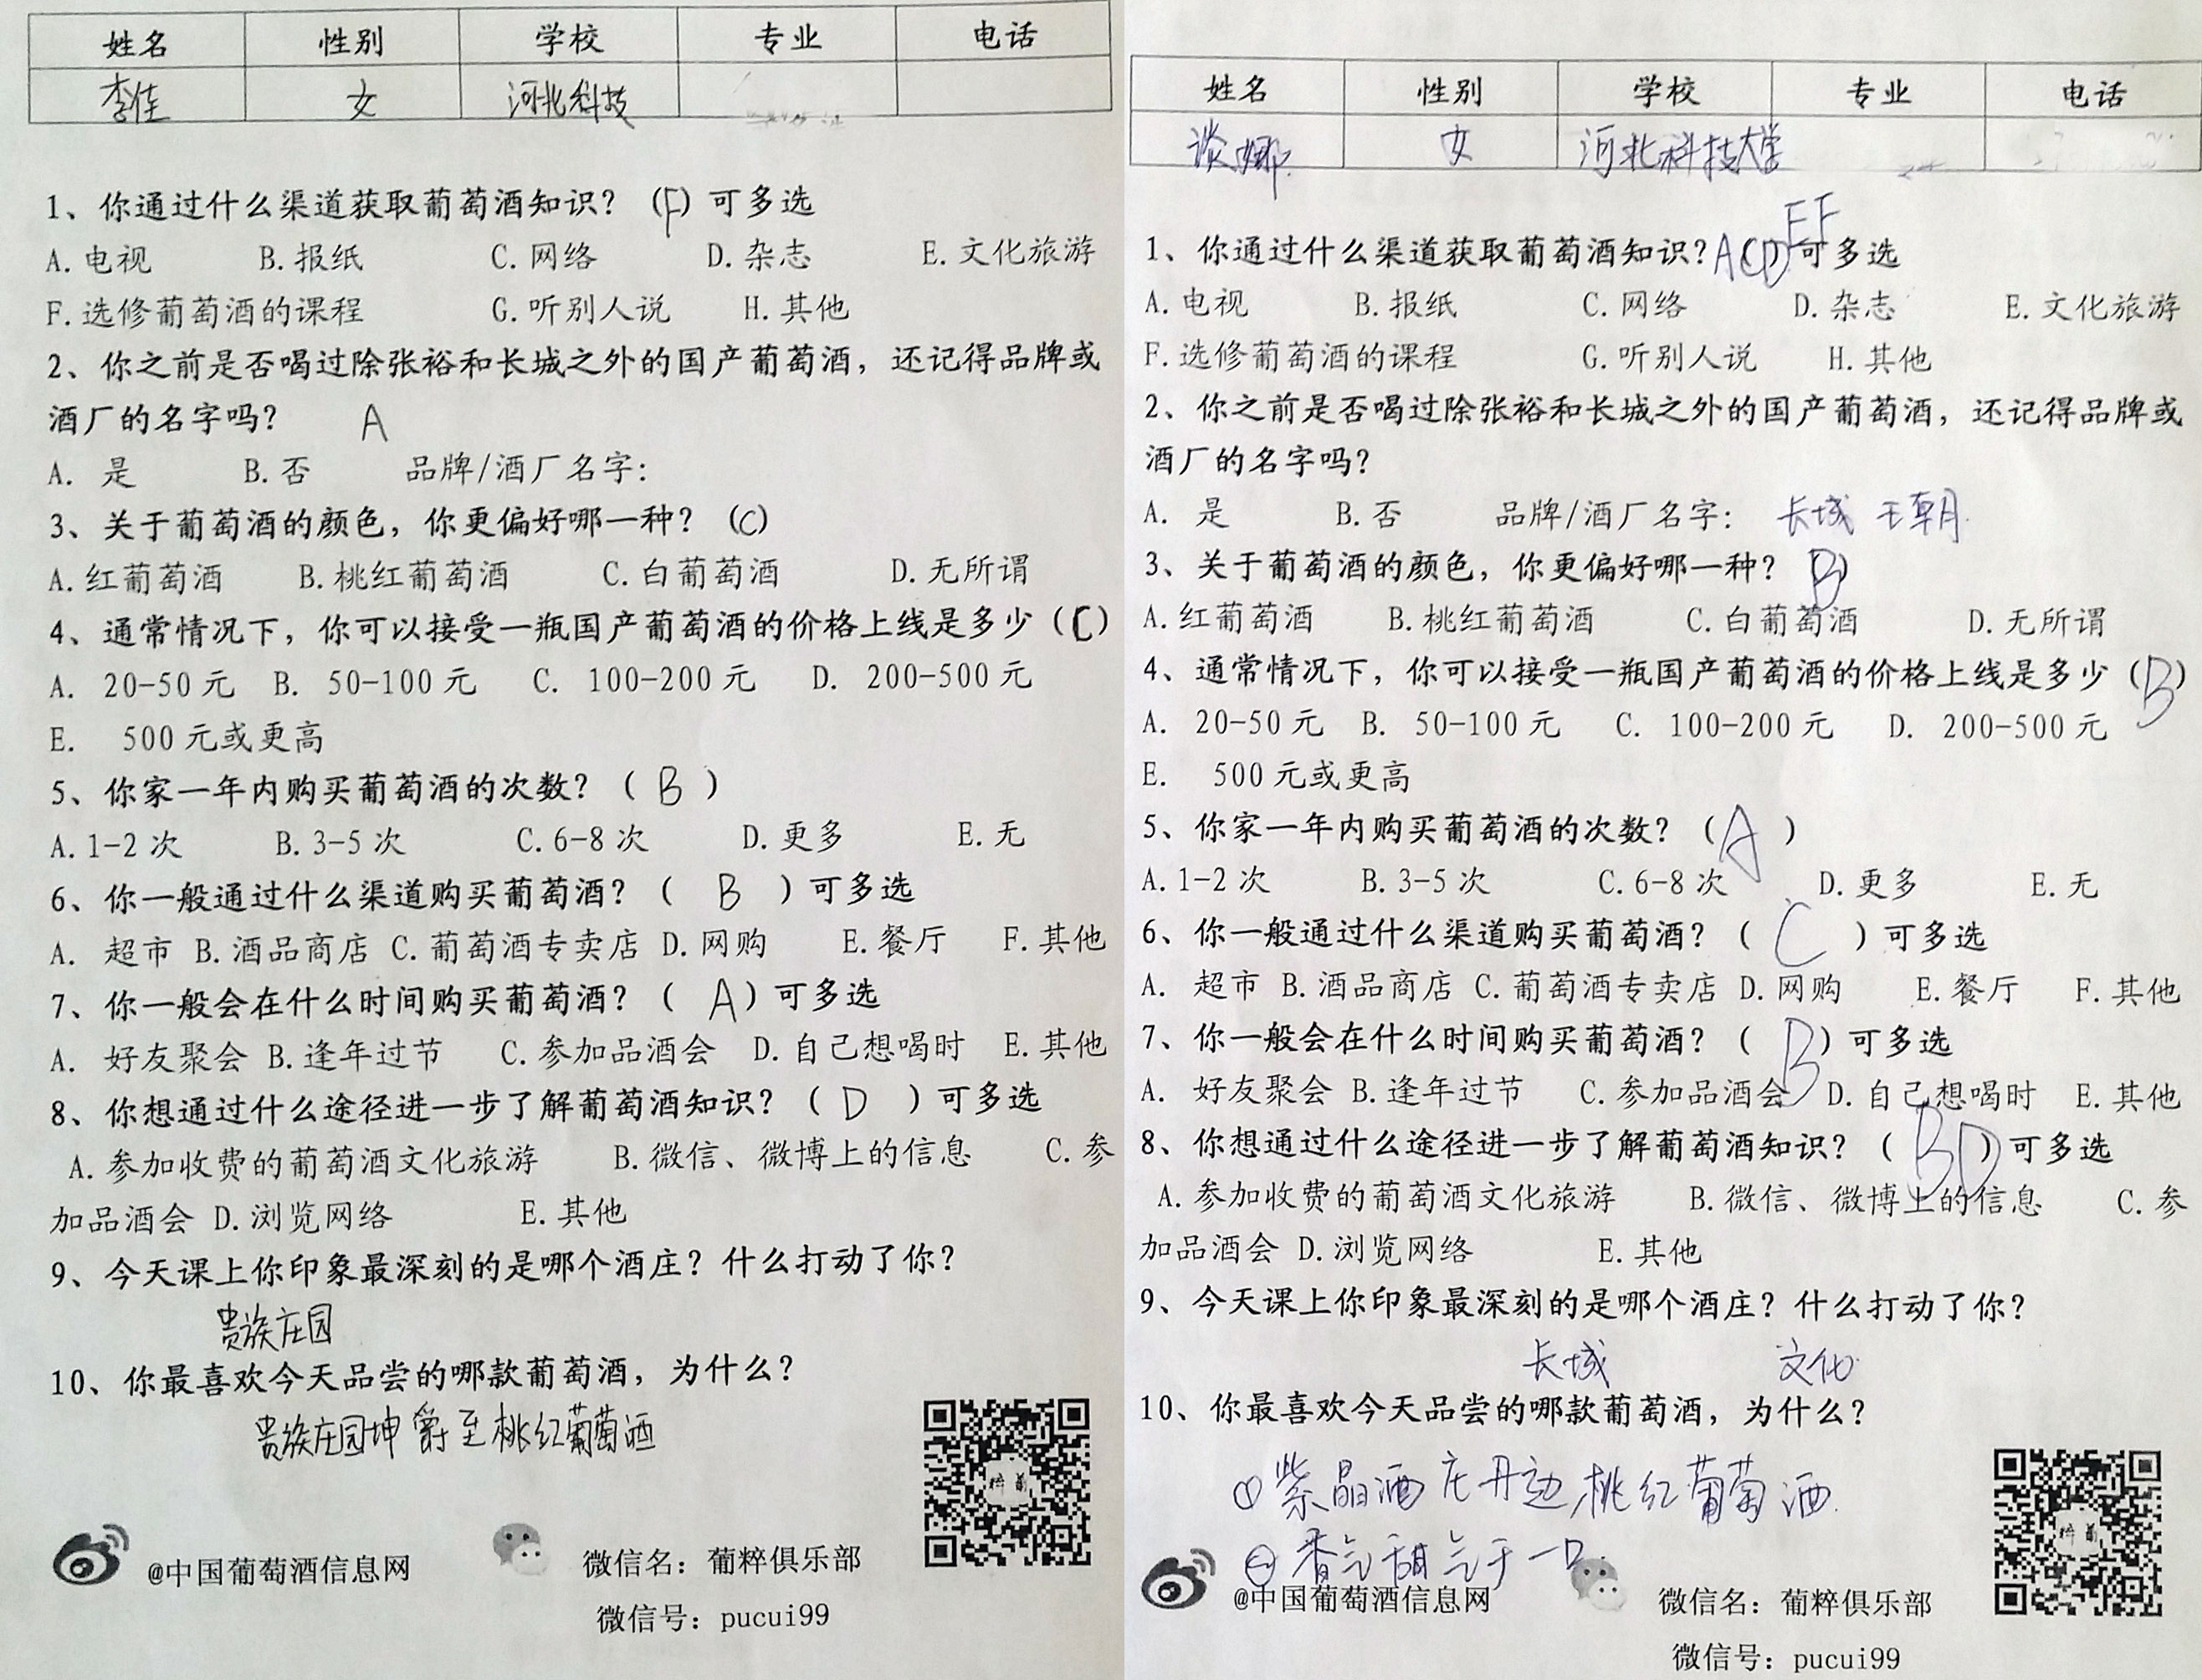 姓名 性别 学校 专业 电话
李佳 女 河北科技
1、你通过什么渠道获取葡萄酒知识？（F）可多选
A.电视 B.报纸 C.网络 D.杂志 E.文化旅游
F.选修葡萄酒的课程 G.听别人说 H.其他
2、你之前是否喝过除张裕和长城之外的国产葡萄酒，还记得品牌或
酒厂的名字吗？ A
A. 是 B.否 品牌/酒厂名字：
3、关于葡萄酒的颜色，你更偏好哪一种？（C）
A.红葡萄酒 B.桃红葡萄酒 C.白葡萄酒 D.无所谓
4、通常情况下，你可以接受一瓶国产葡萄酒的价格上线是多少（C）
A. 20-50元 B. 50-100元 C. 100-200元 D. 200-500元
E. 500元或更高
5、你家一年内购买葡萄酒的次数？（ B ）
A.1-2次 B.3-5次 C.6-8次 D.更多 E.无
6、你一般通过什么渠道购买葡萄酒？（ B ）可多选
A. 超市 B.酒品商店 C.葡萄酒专卖店 D.网购 E.餐厅 F.其他
7、你一般会在什么时间购买葡萄酒？（ A）可多选
A. 好友聚会 B.逢年过节 C.参加品酒会 D.自己想喝时 E.其他
8、你想通过什么途径进一步了解葡萄酒知识？（ D ）可多选
A.参加收费的葡萄酒文化旅游 B.微信、微博上的信息 C.参
加品酒会 D.浏览网络 E.其他
9、今天课上你印象最深刻的是哪个酒庄？什么打动了你？
贵族庄园
10、你最喜欢今天品尝的哪款葡萄酒，为什么？
贵族庄园坤爵至桃红葡萄酒
@中国葡萄酒信息网 微信名：葡粹俱乐部
微信号：pucui99
姓名 性别 学校 专业 电话
谈娜 女 河北科技大学
1、你通过什么渠道获取葡萄酒知识？A（CD）EF可多选
A.电视 B.报纸 C.网络 D.杂志 E.文化旅游
F.选修葡萄酒的课程 G.听别人说 H.其他
2、你之前是否喝过除张裕和长城之外的国产葡萄酒，还记得品牌或
酒厂的名字吗？
A. 是 B.否 品牌/酒厂名字： 长城 王朝
3、关于葡萄酒的颜色，你更偏好哪一种？（B）
A.红葡萄酒 B.桃红葡萄酒 C.白葡萄酒 D.无所谓
4、通常情况下，你可以接受一瓶国产葡萄酒的价格上线是多少（B）
A. 20-50元 B. 50-100元 C. 100-200元 D. 200-500元
E. 500元或更高
5、你家一年内购买葡萄酒的次数？（A ）
A.1-2次 B.3-5次 C.6-8次 D.更多 E.无
6、你一般通过什么渠道购买葡萄酒？（ C ）可多选
A. 超市 B.酒品商店 C.葡萄酒专卖店 D.网购 E.餐厅 F.其他
7、你一般会在什么时间购买葡萄酒？（ B）可多选
A. 好友聚会 B.逢年过节 C.参加品酒会 D.自己想喝时 E.其他
8、你想通过什么途径进一步了解葡萄酒知识？（ BD）可多选
A.参加收费的葡萄酒文化旅游 B.微信、微博上的信息 C.参
加品酒会 D.浏览网络 E.其他
9、今天课上你印象最深刻的是哪个酒庄？什么打动了你？
长城 文化
10、你最喜欢今天品尝的哪款葡萄酒，为什么？
①紫晶酒庄丹边桃红葡萄酒
②香气甜气于一口.
@中国葡萄酒信息网 微信名：葡粹俱乐部
微信号：pucui99